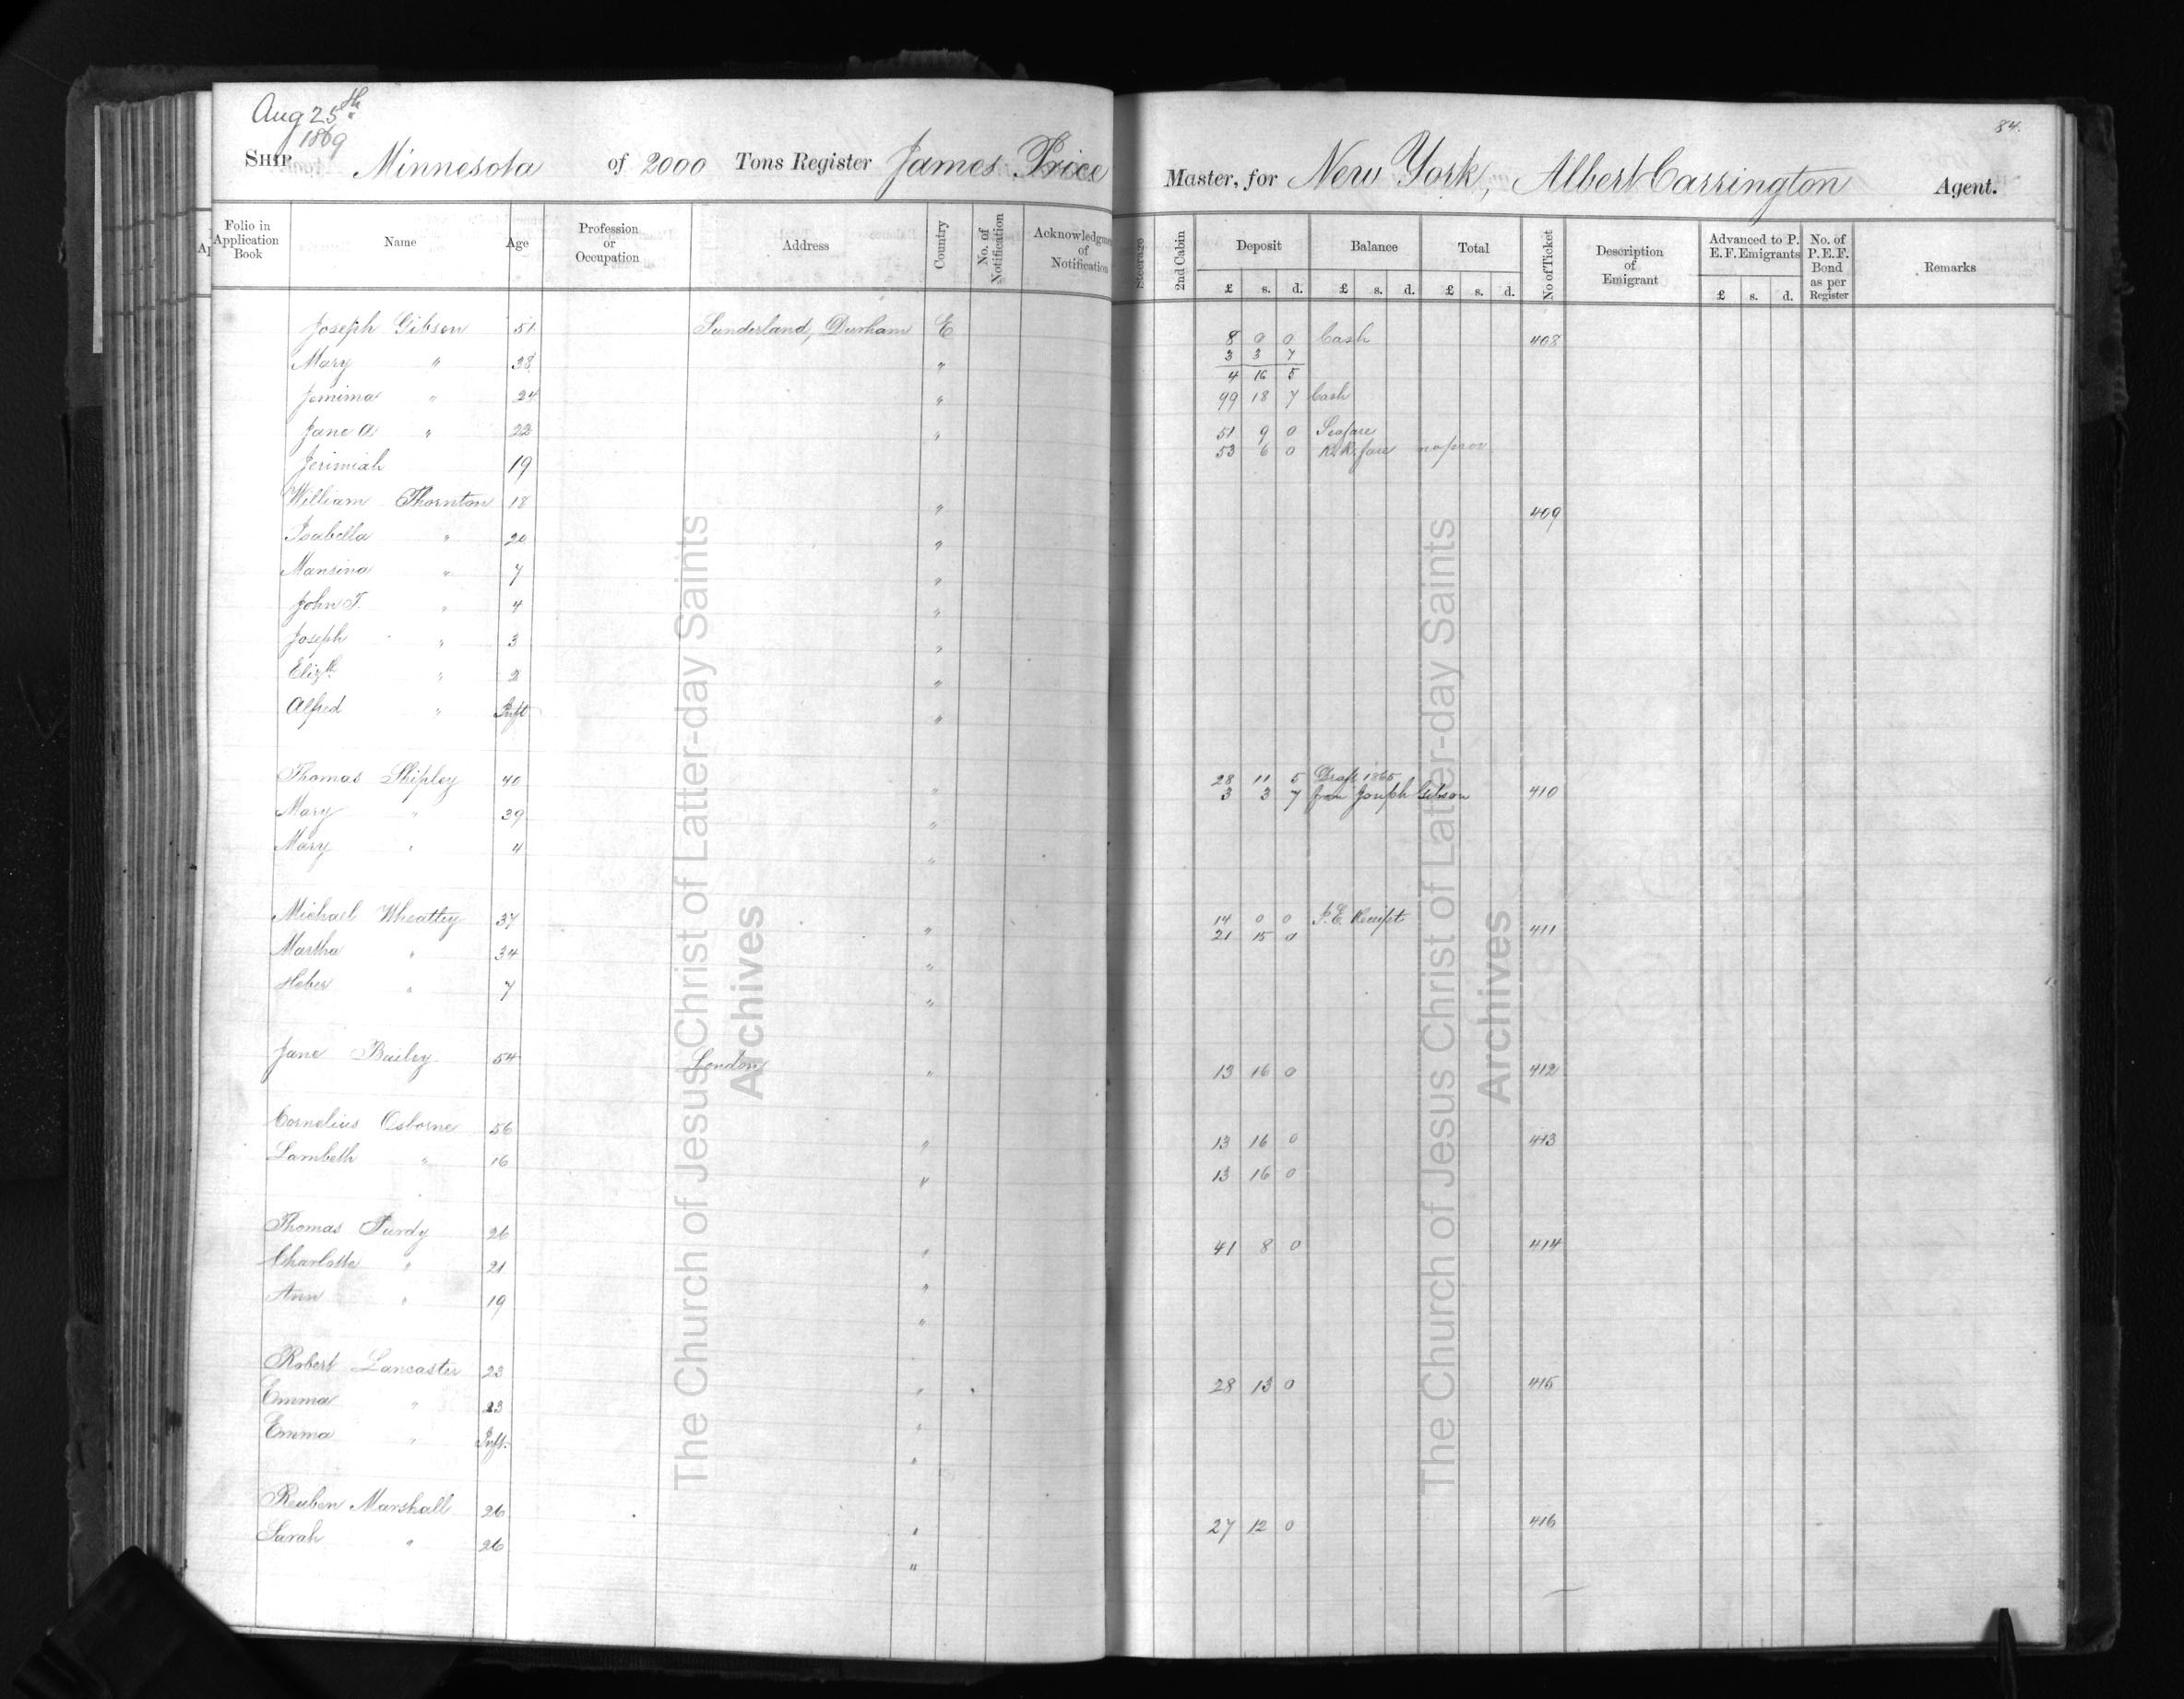 Aug 25th
1869
84.
SHIP Minnesota of 2000 Tons Register James Price Master, for New York, Albert Carrington Agent.
Folio in Application Book Name Age Profession or Occupation Address Country No. of Notification Acknowledgment of Notification Steerage 2nd Cabin Deposit £ s. d. Balance £ s. d. Total £ s. d. No of Ticket Description of Emigrant Advanced to P. E. F. Emigrants £ s. d. No. of P. E. F. Bond as per Register Remarks
Joseph Gibson 51 Sunderland, Durham E 8 0 0 Cash 408
Mary " 38 " 3 3 7
4 16 5
Jemima " 24 " 99 18 7 Cash
Jane A " 22 " 51 9 0 Seafare
53 6 0 R.R. fare no prov
Jerimiah 19
William Thornton 18 " 409
Isabella " 20 "
Mansina " 7 "
John T. " 4 "
Joseph " 3 "
Elizth " 2 "
Alfred " Inft "
Thomas Shipley 40 " 28 11 5 Draft 1865 410
3 3 7 from Joseph Gibson
Mary " 39 "
Mary " 4 "
Michael Wheatley 37 " 14 0 0 P.E. Receipt 411
21 15 0
Martha " 34 "
Heber " 7 "
Jane Bailey 54 London " 13 16 0 412
Cornelius Osborne 56 " 13 16 0 413
Lambeth " 16 " 13 16 0
Thomas Purdy 26 " 41 8 0 414
Charlotte " 21 "
Ann " 19 "
Robert Lancaster 23 " 28 13 0 415
Emma " 23 "
Emma " Inft. "
Reuben Marshall 26 " 27 12 0 416
Sarah " 26 "
The Church of Jesus Christ of Latter-day Saints
Archives
The Church of Jesus Christ of Latter-day Saints
Archives